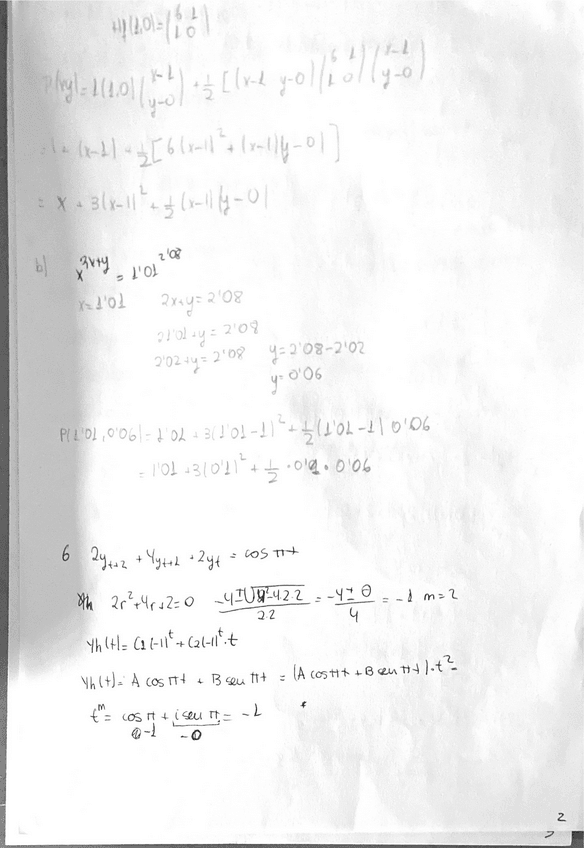 Hf(1,0)=(6 1
1 0)
P(x,y)=1(1,0)(x-1
y-0) + 1/2 [(x-1 y-0)(6 1
1 0)(x-1
y-0)
=1+(x-1)+1/2[6(x-1)²+(x-1)(y-0)]
= x + 3(x-1)² + 1/2 (x-1)(y-0)
b) x^(3x+y) = 1'01^(2'08)
x=1'01 2x+y=2'08
2·1'01+y=2'08
2'02+y=2'08 y=2'08-2'02
y=0'06
P(1'01,0'06)=1'01+3(1'01-1)²+1/2(1'01-1)0'06
=1'01+3(0'1)²+1/2·0'1·0'06
6 2y_(t+2) + 4y_(t+1) + 2y_t = cos πt
Yh 2r²+4r+2=0 (-4±√(4²-4·2·2))/(2·2) = (-4±0)/4 = -1 m=2
Yh(t)= C1(-1)^t + C2(-1)^t·t
Yh(t)= A cos πt + B sen πt = (A cos πt + B sen πt)·t²-
t^m = cos π + i sen π = -1
-1 -0
2